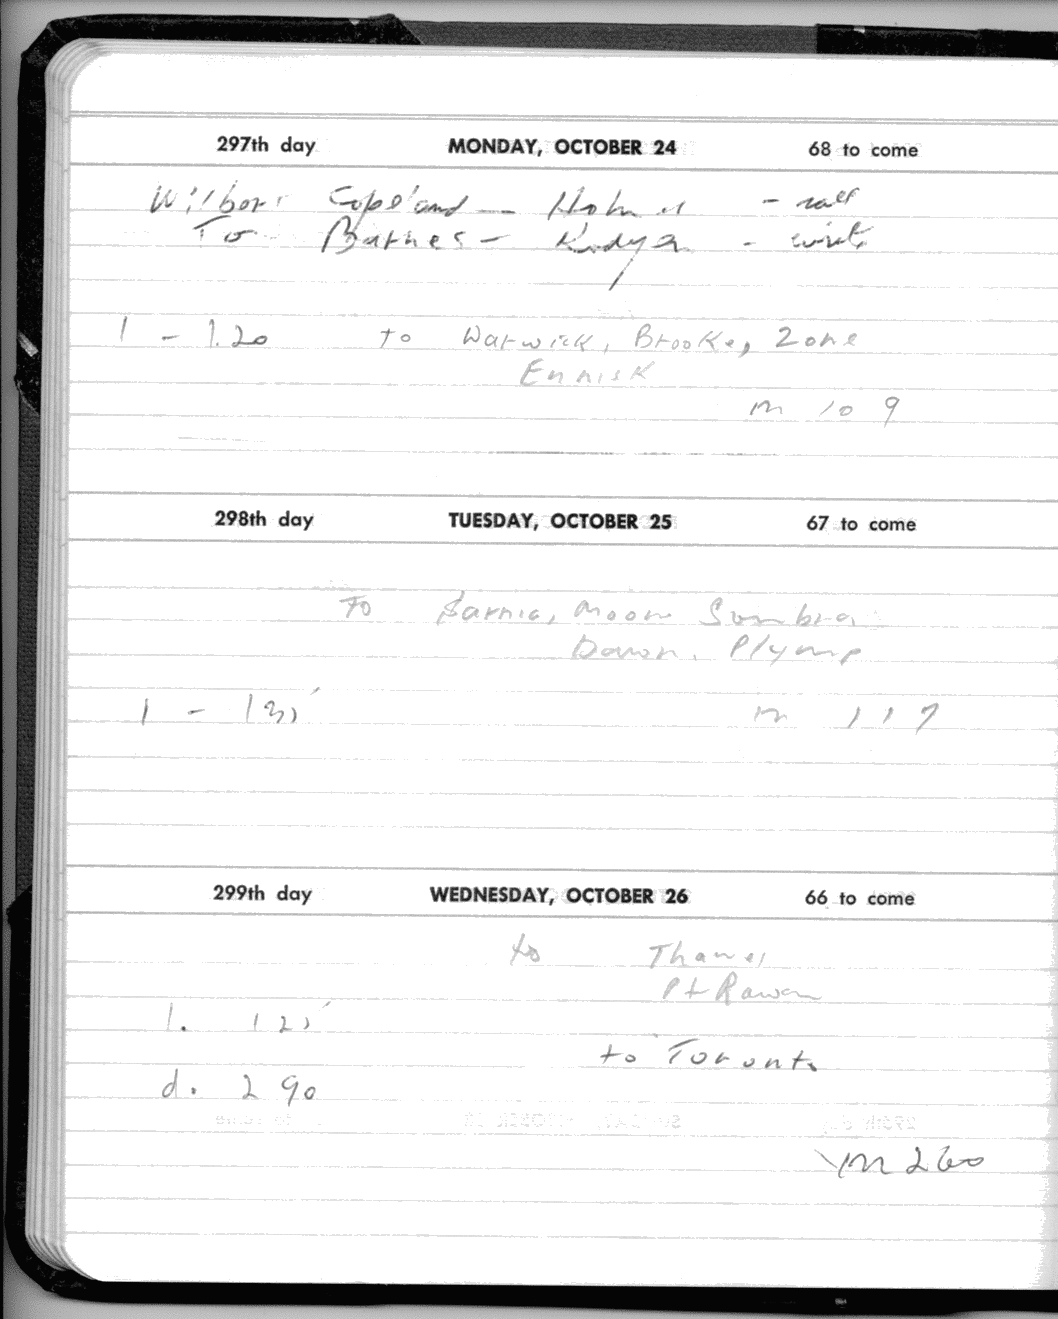 297th day MONDAY, OCTOBER 24 68 to come
Wilbor Copeland — - call
To Barnes — - write
1 - 1.20 to Warwick, Brooke, Zone
Ennisk
m 109
298th day TUESDAY, OCTOBER 25 67 to come
To Sarnia, Moore Sombra
Dawn. Plymp
1 - 135 m 117
299th day WEDNESDAY, OCTOBER 26 66 to come
to Thames
Pt Rowan
l. 125
to Toronto
d. 290
m 260